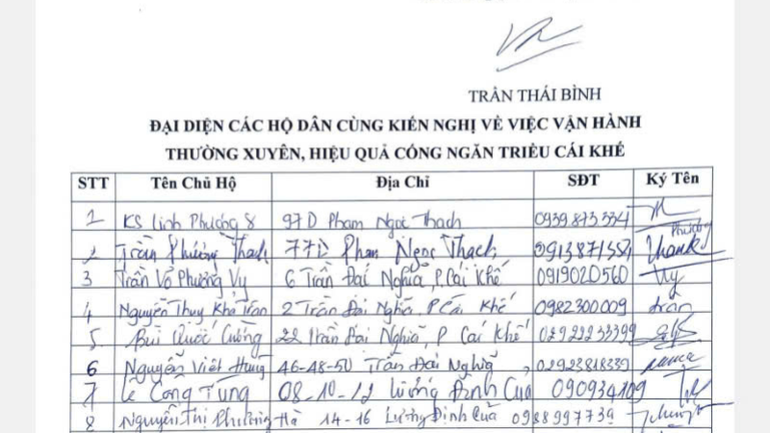 TRẦN THÁI BÌNH
ĐẠI DIỆN CÁC HỘ DÂN CÙNG KIẾN NGHỊ VỀ VIỆC VẬN HÀNH
THƯỜNG XUYÊN, HIỆU QUẢ CỐNG NGĂN TRIỀU CÁI KHẾ
STT Tên Chủ Hộ Địa Chỉ SĐT Ký Tên
1 KS Linh Phương 8 97D Phạm Ngọc Thạch 0939.873.334
2 Trần Phương Thạch 77D Phan Ngọc Thạch 0913871554 Phương Thanh
3 Trần Võ Phương Vy 6 Trần Đại Nghĩa, P. Cái Khế 0919020560 Vy
4 Nguyễn Thuy Khả Trân 2 Trần Đại Nghĩa, P Cái Khế 0982300009 trân
5. Bùi Quốc Cường 22 Trần Đại Nghĩa, P Cái Khế 02922233399
6 Nguyễn Việt Hùng 46-48-50 Trần Đại Nghĩa, 02923818339
7 Lê Công Tùng 08-10-12 Lương Đình Của 090934109
8 Nguyễn Thị Phương Hà 14-16 Lương Định Của 0988997739